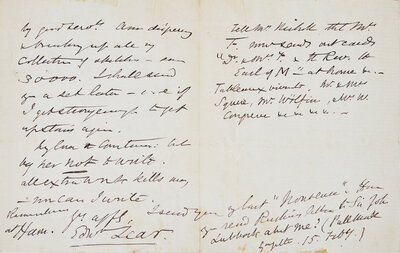 by good serv't. Am disposing
& breaking up all my
collection of sketches — some
30000. I shall send
you a set later — i.e. if
I get strong enough to get
upstairs again.
My love to Constance: but
beg her not to write.
all extra work kills me,
— nor can I write.
Remember yrs affly.
at Ham. Edwd Lear.
Tell Mrs
T. now sends out cards
"Dr. & Mrs. T. & the Revd. the
Earl of M — at home &.
Tableaux vivants. Mr & Mrs
Squire, Mr. Wolfin, Mr. W.
Congreve & & & & .—
I send you my last "Nonsense". Have
you read Ruskin's letter to Sir John
Lubbock about me? (Pall Mall
Gazette. 15. Feby.)